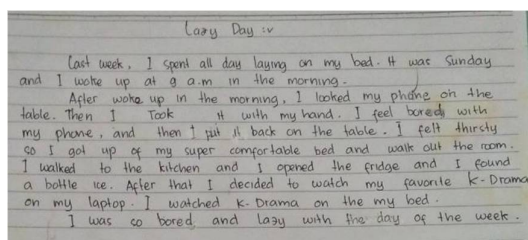 Lazy Day :v
Last week, I spent all day laying on my bed. It was Sunday
and I woke up at 9 a.m in the morning.
After woke up in the morning, I looked my phone on the
table. Then I Took it with my hand. I feel bored with
my phone, and then I put it back on the table. I felt thirsty
so I got up of my super comfortable bed and walk out the room.
I walked to the kitchen and I opened the fridge and I found
a bottle ice. After that I decided to watch my favorite K-Drama
on my laptop. I watched K-Drama on the my bed.
I was so bored and lazy with the day of the week.